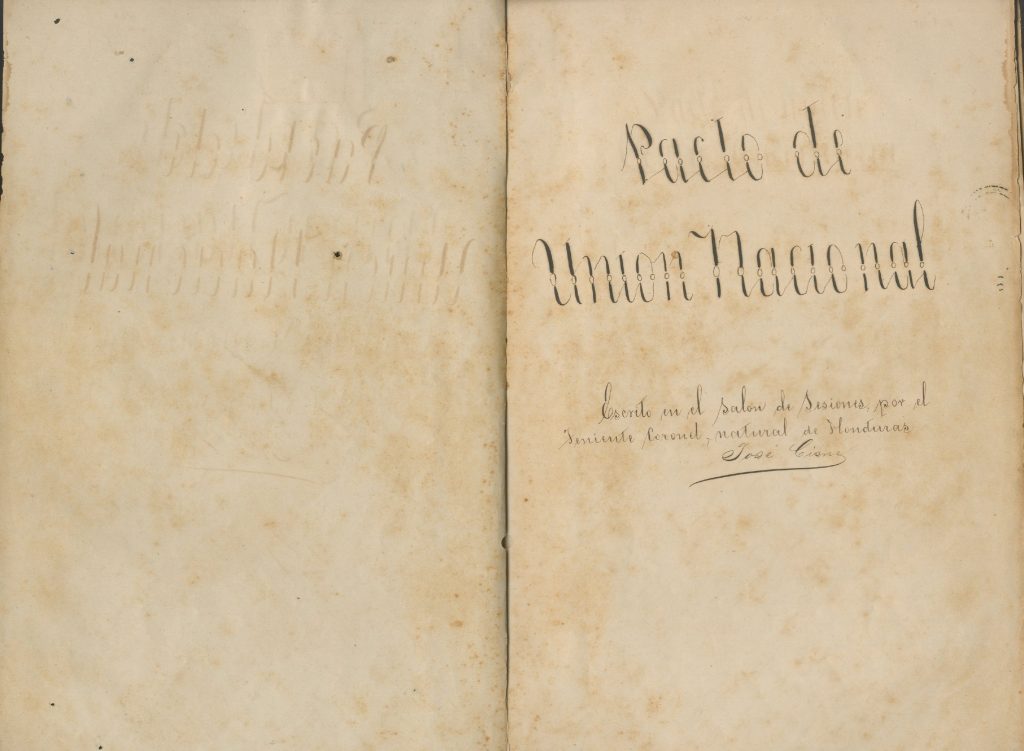 Pacto de
Union Nacional
Escrito en el Salon de Sesiones, por el
Teniente Coronel, natural de Honduras
José Cisne